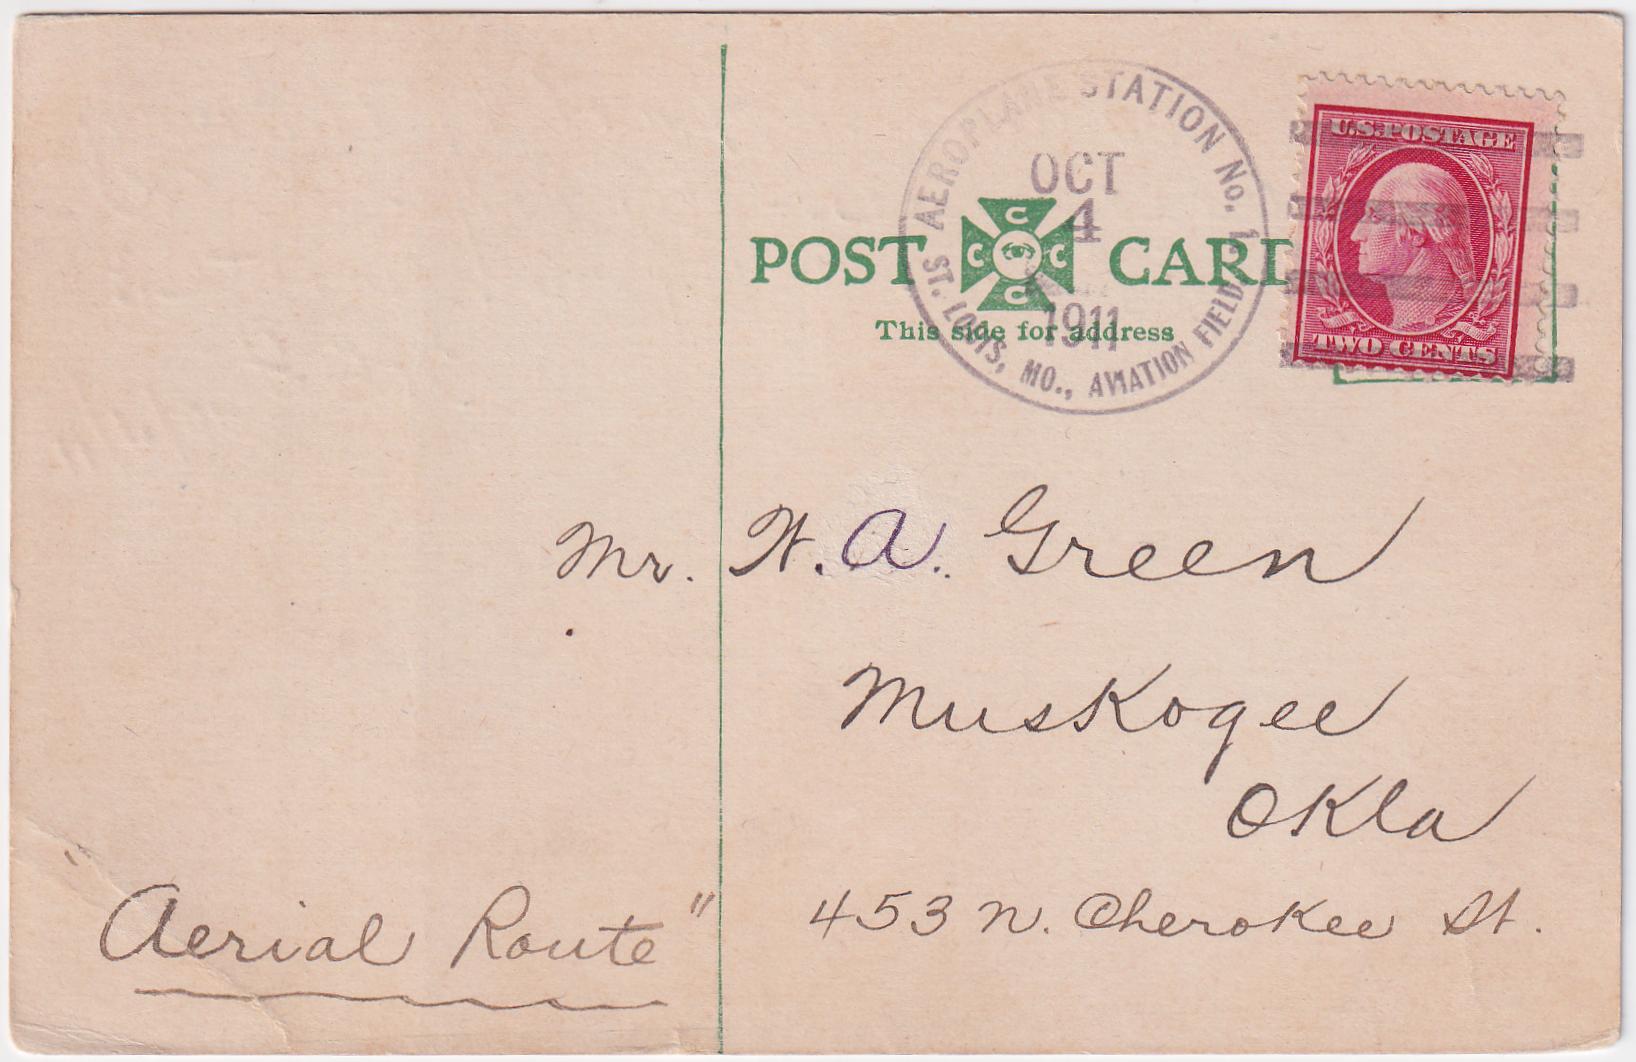 AEROPLANE STATION No. 1.
OCT
4
1911
ST. LOUIS, MO., AVIATION FIELD
U.S. POSTAGE
TWO CENTS
POST CARD
C C C C
This side for address
Mr. W. A. Green
Muskogee
Okla
453 N. Cherokee St.
"Aerial Route"